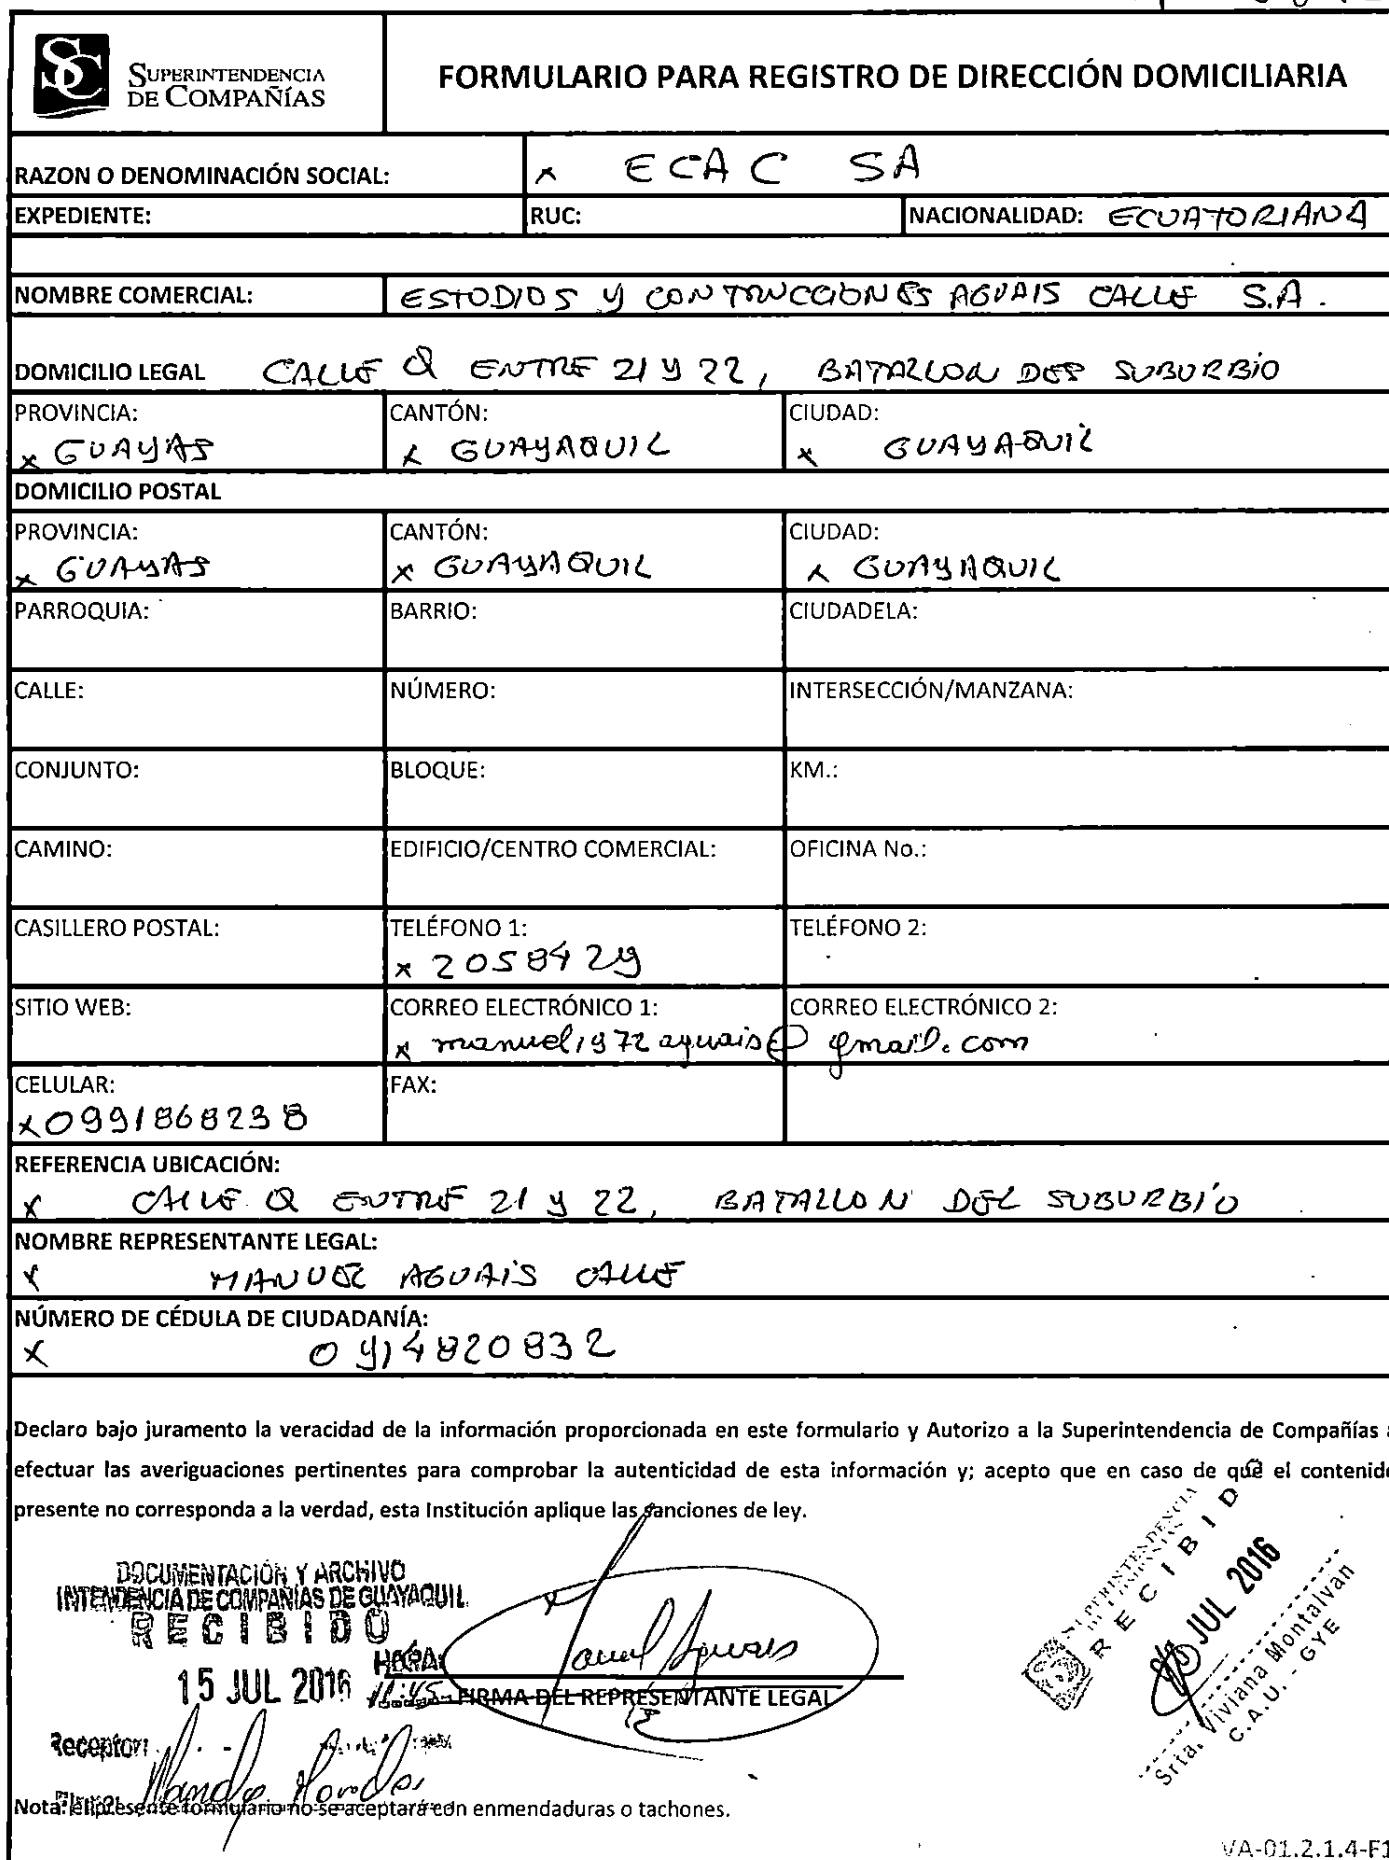 SUPERINTENDENCIA
DE COMPAÑÍAS
FORMULARIO PARA REGISTRO DE DIRECCIÓN DOMICILIARIA
RAZON O DENOMINACIÓN SOCIAL: x ECAC SA
EXPEDIENTE: RUC: NACIONALIDAD: ECUATORIANA
NOMBRE COMERCIAL: ESTODIOS Y CONTRUCCIONES AGUAIS CALLE S.A.
DOMICILIO LEGAL CALLE Q ENTRE 21 Y 22, BATALLON DEL SUBURBIO
PROVINCIA: CANTÓN: CIUDAD:
x GUAYAS x GUAYAQUIL x GUAYAQUIL
DOMICILIO POSTAL
PROVINCIA: CANTÓN: CIUDAD:
x GUAYAS x GUAYAQUIL x GUAYAQUIL
PARROQUIA: BARRIO: CIUDADELA:
CALLE: NÚMERO: INTERSECCIÓN/MANZANA:
CONJUNTO: BLOQUE: KM.:
CAMINO: EDIFICIO/CENTRO COMERCIAL: OFICINA No.:
CASILLERO POSTAL: TELÉFONO 1: TELÉFONO 2:
x 2058429
SITIO WEB: CORREO ELECTRÓNICO 1: CORREO ELECTRÓNICO 2:
x manuel1972aguais@gmail.com
CELULAR: FAX:
x 0991868238
REFERENCIA UBICACIÓN:
x CALLE Q ENTRE 21 Y 22, BATALLON DEL SUBURBIO
NOMBRE REPRESENTANTE LEGAL:
x MANUEL AGUAIS CALLE
NÚMERO DE CÉDULA DE CIUDADANÍA:
x 0914820832
Declaro bajo juramento la veracidad de la información proporcionada en este formulario y Autorizo a la Superintendencia de Compañías a
efectuar las averiguaciones pertinentes para comprobar la autenticidad de esta información y; acepto que en caso de que el contenido
presente no corresponda a la verdad, esta Institución aplique las sanciones de ley.
DOCUMENTACIÓN Y ARCHIVO
INTENDENCIA DE COMPAÑIAS DE GUAYAQUIL
RECIBIDO
15 JUL 2016 HORA: 11:45
FIRMA DEL REPRESENTANTE LEGAL
Receptor:
SUPERINTENDENCIA
RECIBIDO
JUL 2016
Srta. Viviana Montalvan
C.A.U. - GYE
Nota: el presente formulario no se aceptará con enmendaduras o tachones.
VA-01.2.1.4-F1